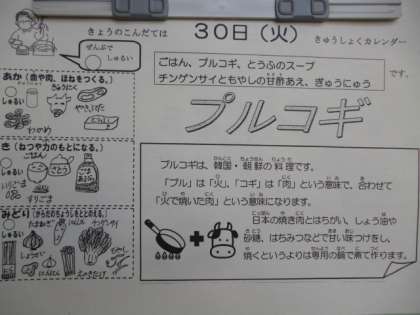 きょうのこんだては
30日(火)
きゅうしょくカレンダー
ぜんぶで
しゅるい
ごはん、プルコギ、とうふのスープ
チンゲンサイともやしの甘酢あえ、ぎゅうにゅう
です。
あか(血や肉、ほねをつくる。)
しゅるい
わかめ
プルコギ
き(ねつや力のもとになる。)
しゅるい
ごはん
さとう
ごま油
いりごま
みどり(からだのちょうしをととのえる。)
しゅるい
たまねぎ
にんじん
チンゲンサイ
えのきたけ
もやし
プルコギは、韓国・朝鮮の料理です。
「プル」は「火」、「コギ」は「肉」という意味で、合わせて
「火で焼いた肉」という意味になります。
日本の焼き肉とはちがい、しょう油や
砂糖、はちみつなどで甘い味つけをし、
焼くというよりは専用の鍋で煮て作ります。